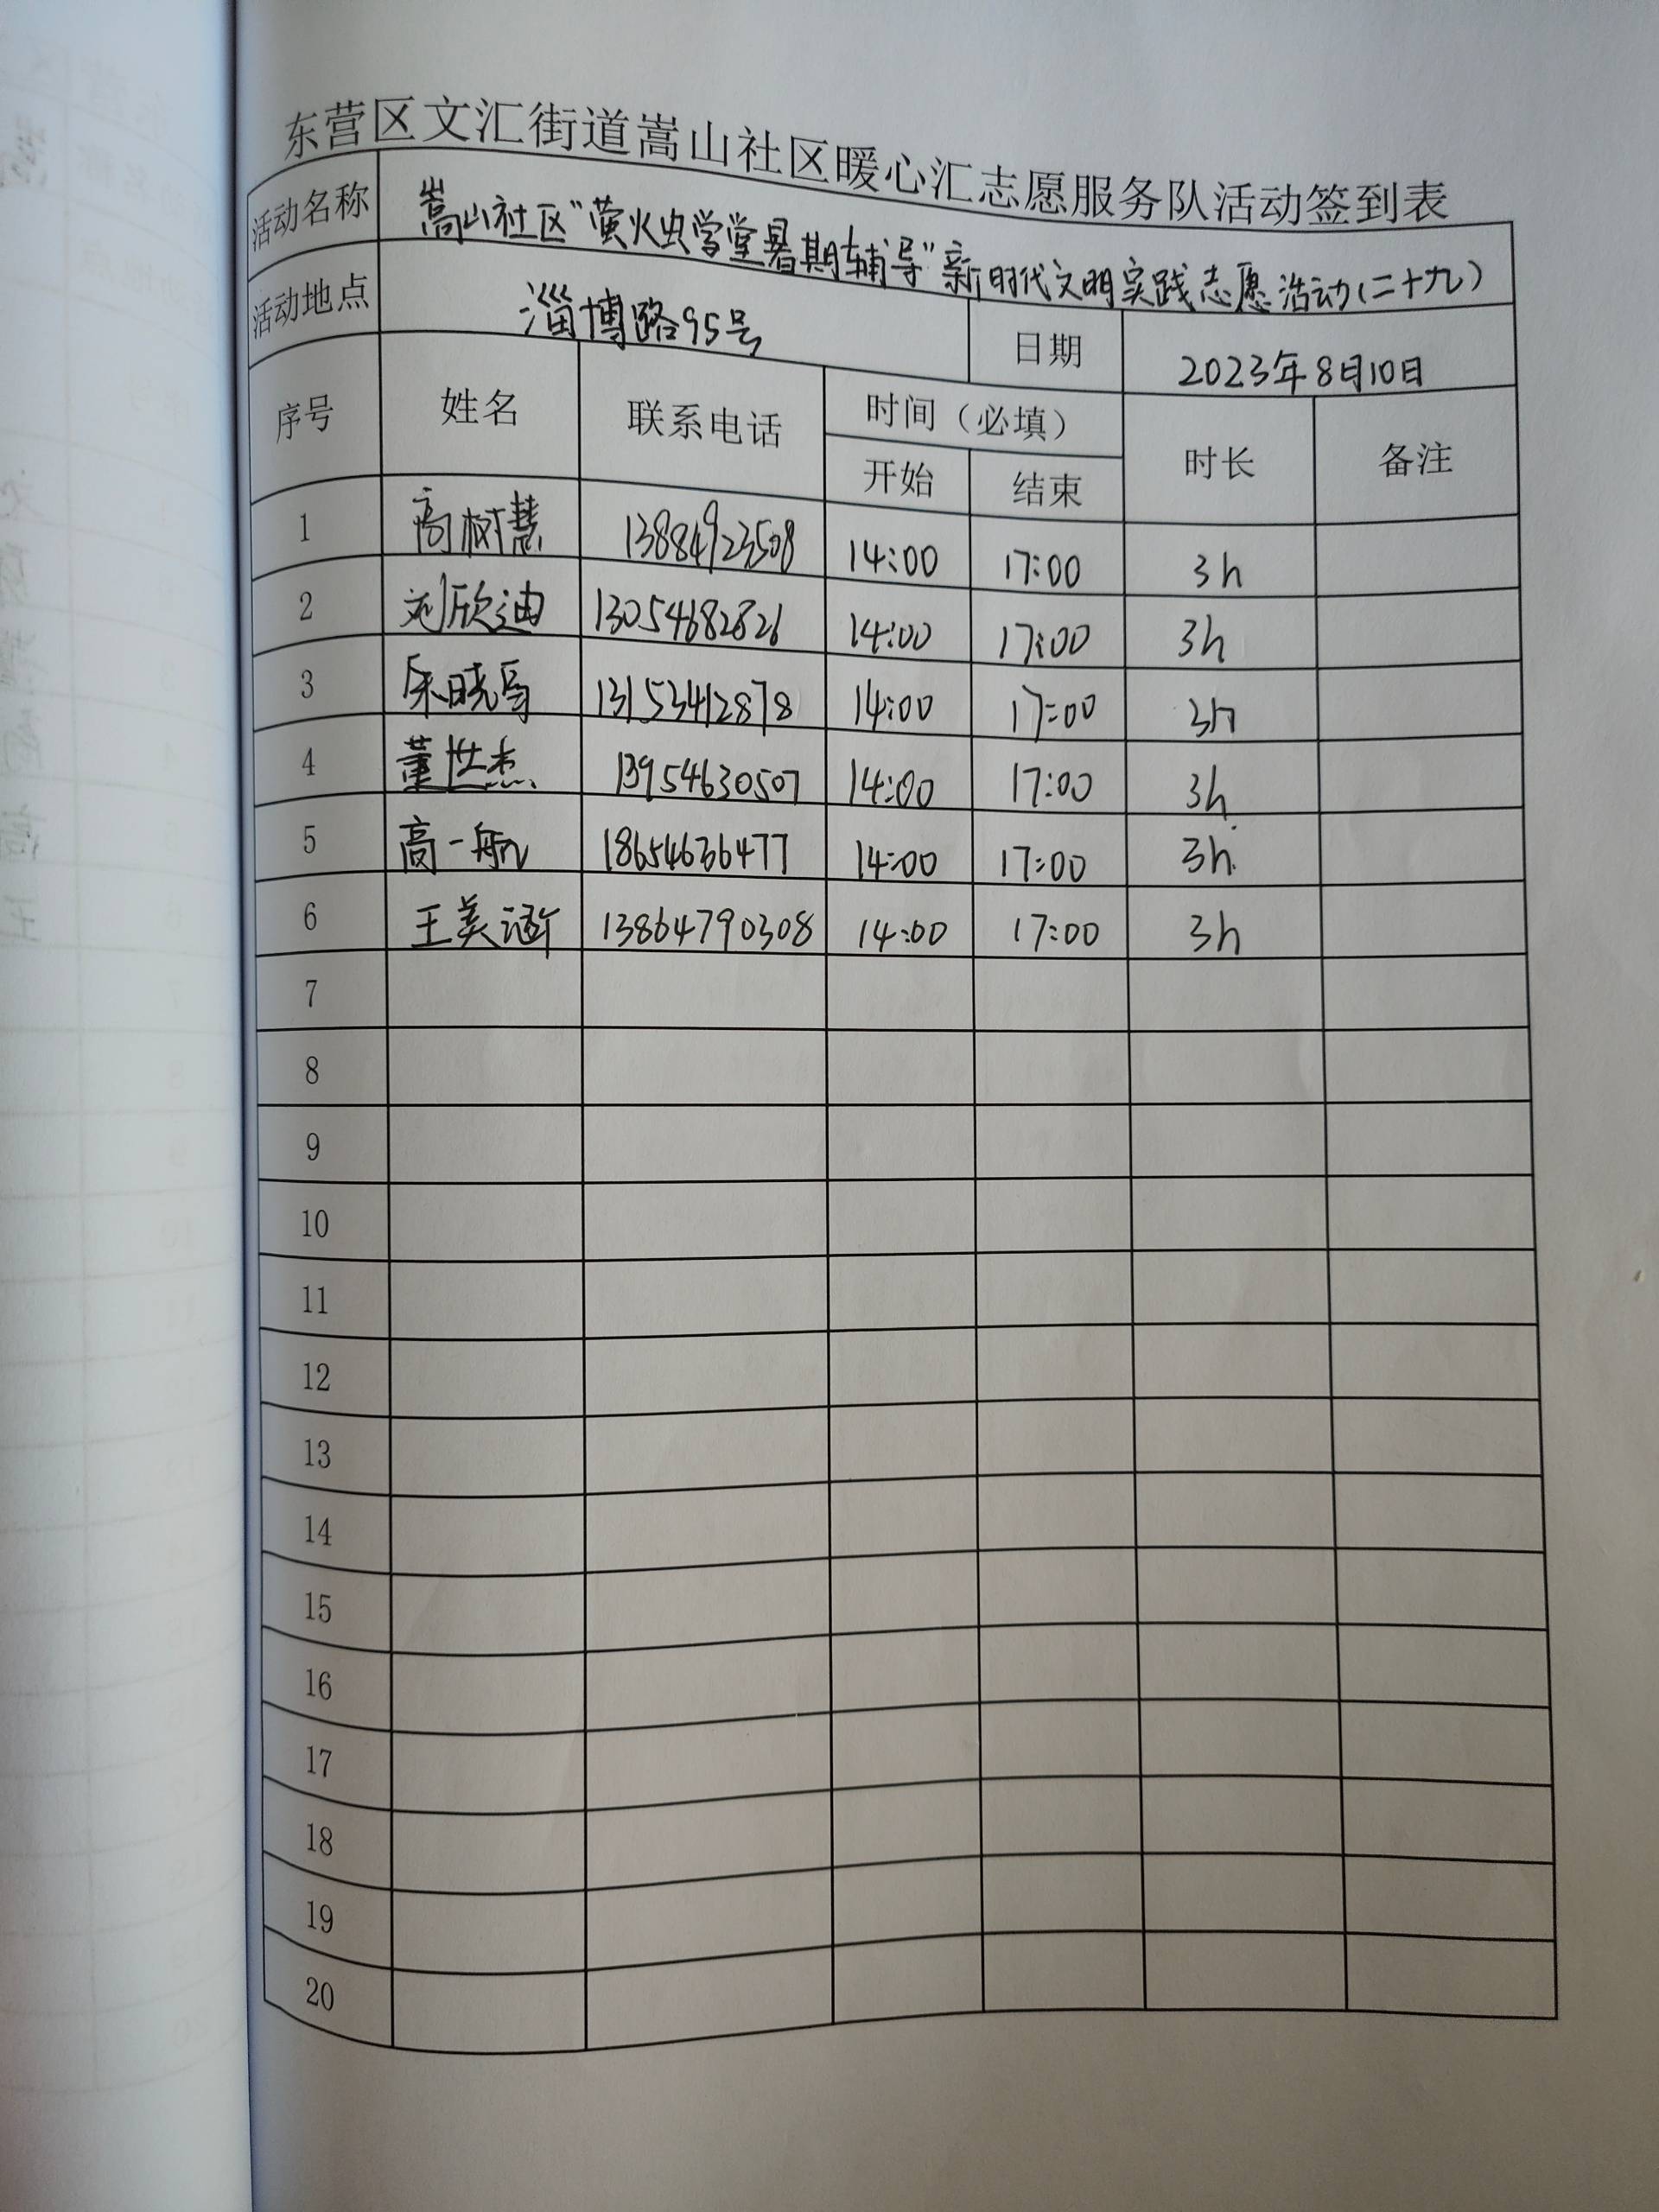 东营区文汇街道嵩山社区暖心汇志愿服务队活动签到表
活动名称 嵩山社区"萤火虫学堂暑期辅导"新时代文明实践志愿活动(二十九)
活动地点 淄博路95号 日期 2023年8月10日
序号 姓名 联系电话 时间（必填） 时长 备注
开始 结束
1 高树慧 13884923508 14:00 17:00 3h
2 刘欣迪 13054682826 14:00 17:00 3h
3 13153412878 14:00 17:00 3h
4 董世杰 13954630507 14:00 17:00 3h
5 高一航 18654636477 14:00 17:00 3h
6 王美涵 13864790308 14:00 17:00 3h
7
8
9
10
11
12
13
14
15
16
17
18
19
20